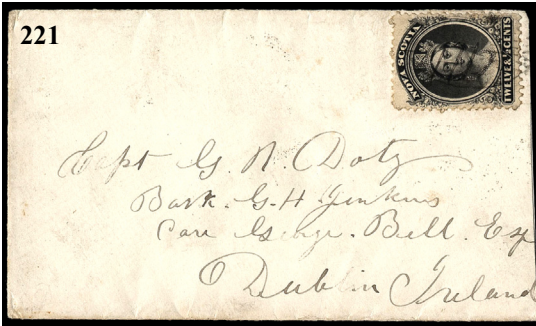 221
NOVA SCOTIA
TWELVE & ½ CENTS
Capt G. N. Doty
Bark. G. H. Jenkins
Care George. Bell. Esq
Dublin Ireland